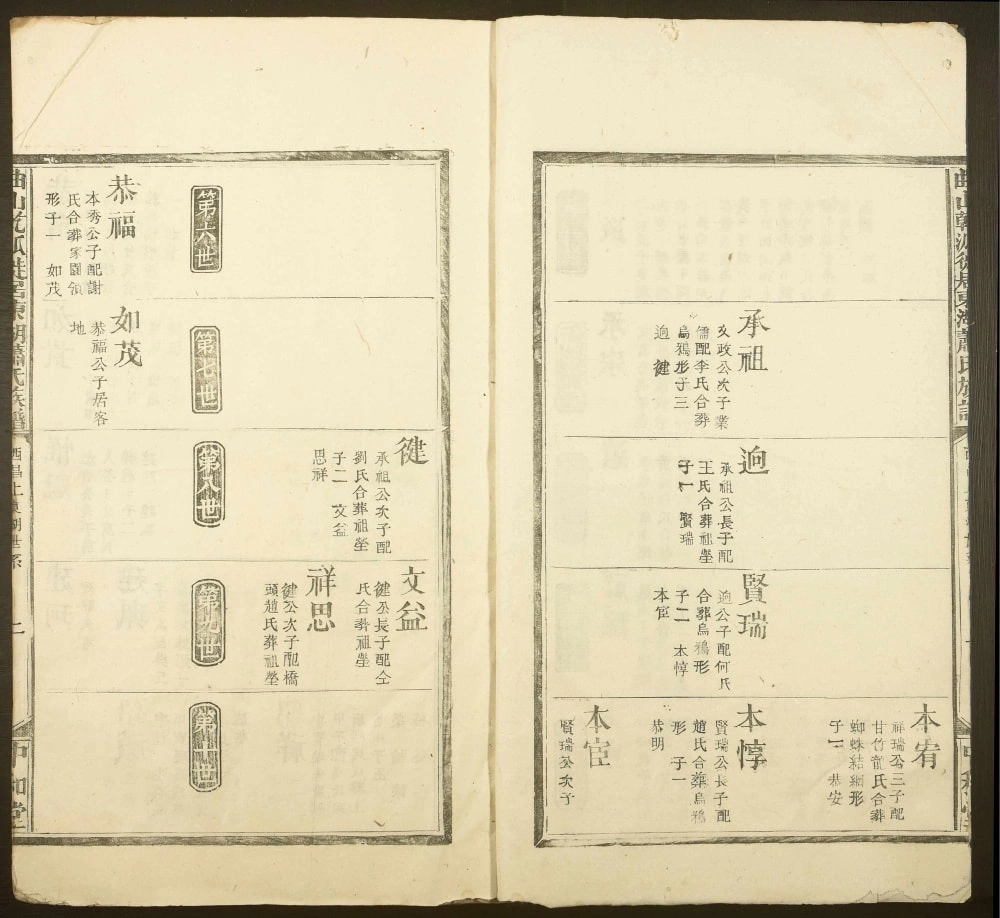 本宥
祥瑞公三子配
甘竹龍氏合葬
蜘蛛結網形
子一 恭安
承祖
友政公次子業
儒配李氏合葬
烏鴉形子三
逈 健
逈
承祖公長子配
王氏合葬祖塋
子一 賢瑞
賢瑞
逈公子配何氏
合葬烏鴉形
子二 本惇
本宦
本惇
賢瑞公長子配
趙氏合葬烏鴉
形 子一
恭明
本宦
賢瑞公次子
健
承祖公次子配
劉氏合葬祖塋
子二 文益
思祥
文益
健公長子配仝
氏合葬祖塋
祥思
健公次子配橋
頭趙氏葬祖塋
第六世
第七世
第八世
第九世
第世
恭福
本秀公子配謝
氏合葬家園領
形子一 如茂
如茂
恭福公子居客
地
東湖蕭氏族譜
二